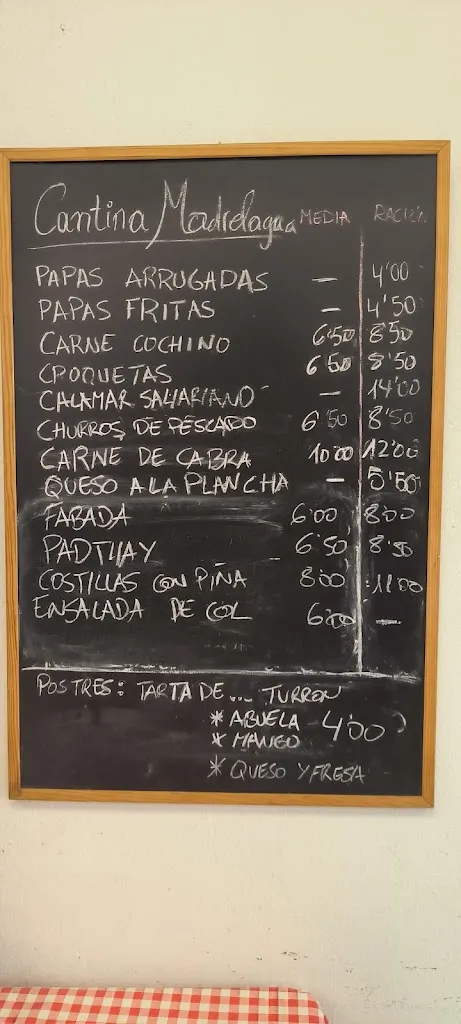 Cantina Madrelagua MEDIA RACIÓN
PAPAS ARRUGADAS — 4'00
PAPAS FRITAS — 4'50
CARNE COCHINO 6'50 8'50
CROQUETAS 6'50 8'50
CALAMAR SAHARIANO — 14'00
CHURROS DE PESCADO 6'50 8'50
CARNE DE CABRA 10'00 12'00
QUESO A LA PLANCHA — 5'50
FABADA 6'00 8'00
PADTHAY 6'50 8'50
COSTILLAS CON PIÑA 8'00 11'00
ENSALADA DE COL 6'00 —
POSTRES: TARTA DE... TURRON
* ABUELA 4'00
* MANGO
* QUESO Y FRESA